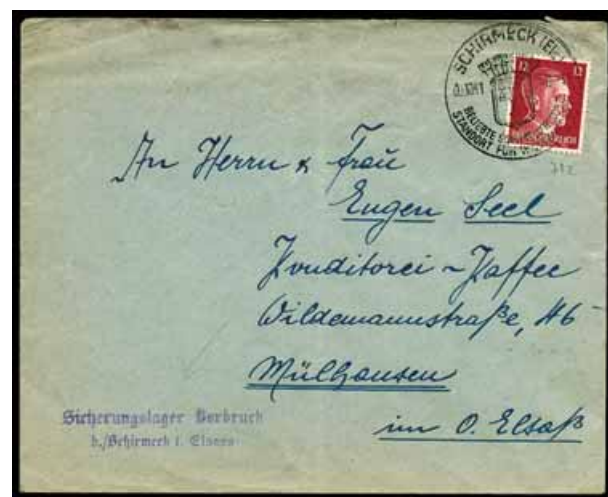 SCHIRMECK (EL
12 12
BELIEBTE
STANDORT FÜR
An Herrn & Frau
Eugen Seel
Konditorei - Kaffee
Wildemannstraße, 46
Mülhausen
im O. Elsaß
Sicherungslager Vorbruck
b./Schirmeck i. Elsass